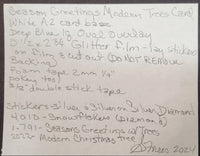 Season Greetings Modern Trees Card
White A2 card base
Deep Blue Oval Overlay
5 1/2 x 2 3/4" Glitter film - lay stickers
on film & cut out (DO NOT REMOVE
Backing)
Foam tape 2mm 1/4"
pokey tool
1/8" double stick tape
Stickers: Silver & Silver on Silver Diamond
4010 - Snowflakes (Diamond)
1.791 - Seasons Greetings w/ Trees
Modern Christmas Tree
2024